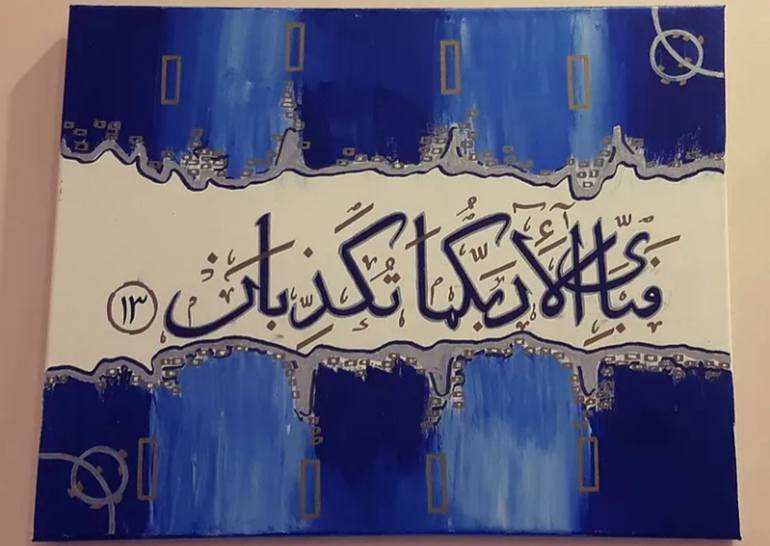 فبأي آلاء ربكما تكذبان ١٣